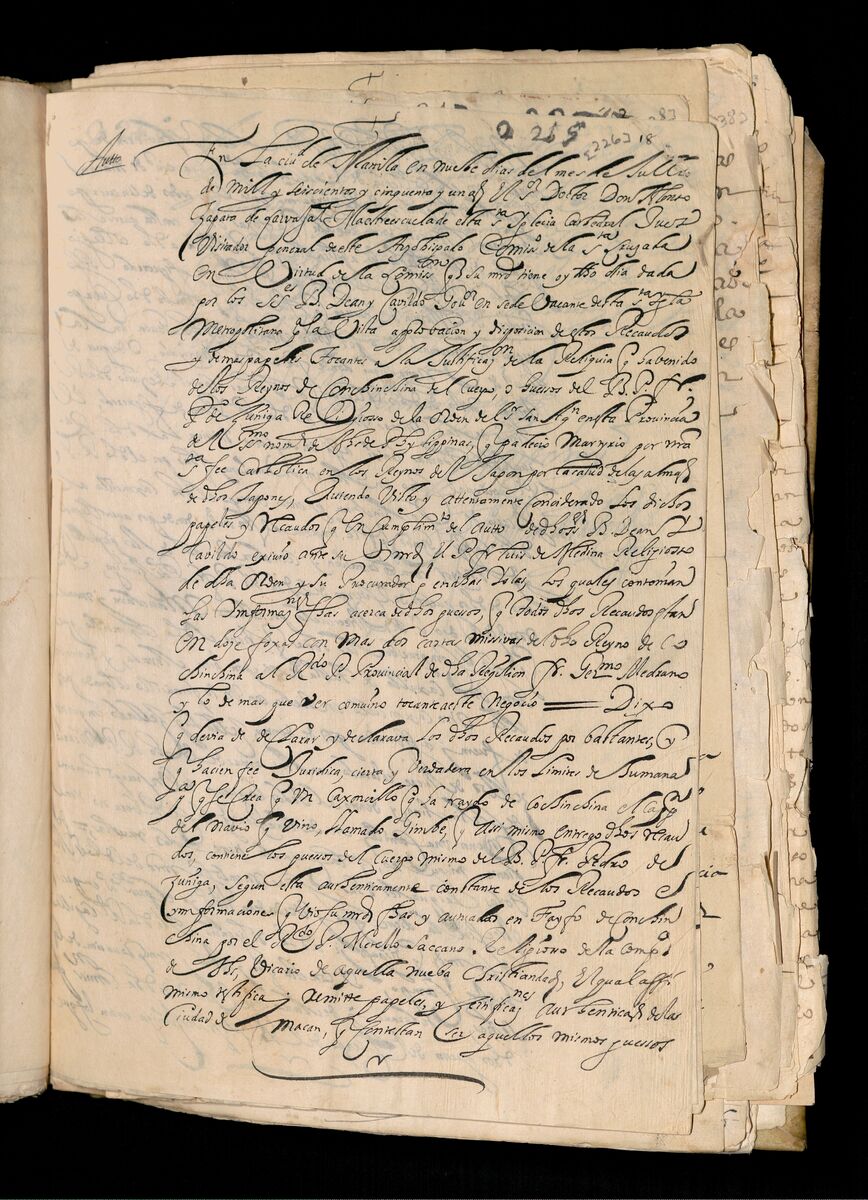 2 255
[226] 18
Autto
En La ciud de Manila en nuebe dias del mes de Jullio
de mill y seiscientos y cinquenta y un aº El Sr Doctor Don Alonso
Zapata de carvajal Maestreescuela de esta sta Iglecia Cathedral Juez
Visitador general de este Arçobispado Comissº de la sta Crujada
en Virtud de la Comisson q su mrd tiene oy dho dia dada
por los SSes B. Dean y Cavildo Govor en sede Vacante desta sta Igla
Metropolitano Pa la Vista aprobacion y disposicion de estos Recaudos
y demas papeles tocantes a la Justificaon de la Reliquia q ha benido
de los Reynos de Conchinchina del Cuerpo, o huesos del B. P. fr.
Po de Zuniga Religioso de la orden de Sr San Agn en esta Provincia
del SSmo nome de Jhs de Philippinas, q padecio Martyrio por nra
sta fee Catholica en los Reynos del Japon por la salud de las almas
de dhos Japones, Auiendo Visto y attentamente Considerado los dichos
papeles y Recaudos q en Cumplimto del Auto de dhos SSes B. Dean y
Cavildo exivio ante su mrd el P. fr luis de Medina Religioso
de dha orden y su Procurador g en dhas Islas, los quales contenian
las Ynformanes fhas acerca de dhos guesos, q todos dhos Recaudos estan
en doze foxas con mas dos cartas missivas del dho Reyno de co
chinchina al Rdo P. Provincial de dha Relegion fr. Germo Medrano
y lo de mas que ver convino tocante a este Negocio == Dixo
q devia de declarar y declarava los dhos Recaudos por bastantes, y
q hacien fee Juridica, cierta y Verdadera en los limites de humana
y q se Crea q Un Caxoncillo q ha traydo de cochinchina el Capn
del navio q vino, llamado Gimbe, y assi mismo entrego dhos recau
dos, contiene los guesos del Cuerpo mismo del B. P. fr. Pedro de
Zuñiga, segun esta authenticamente constante de los Recaudos e
ynformaciones q vio su mrd fhas y actuadas en Fayfo de Conchin
china por el Rdo P. Metello Saccano Religioso de la Compa
de Jhs, Vicario de aquella nueba Christiandad, El qual assi
mismo testifica y remite papeles, y certificanes authenticas de las
Ciudad de Macan, q contestan ser aquellos mismos guesos